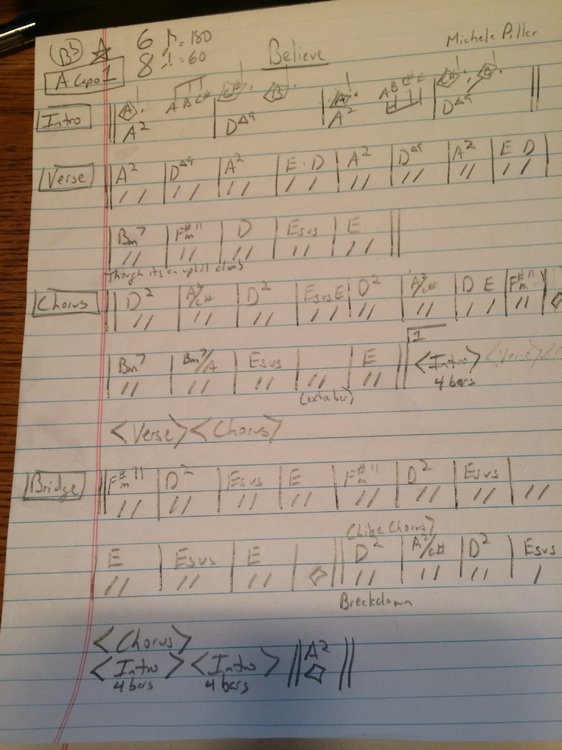 Bb 6 ♪=180 Believe Michele Piller
A Capo 1 8 ♩.=60
Intro A A B C# E B A A B C# E B
A2 DΔ9 A2 DΔ9
Verse A2 DΔ9 A2 E . D A2 DΔ9 A2 E D
Bm7 F#m11 D Esus E
Though its an uphill climb
Chorus D2 A2/C# D2 Esus E D2 A2/C# D E F#m11
Bm7 Bm7/A Esus E 1 <Intro> <Verse> <
(extra bar) 4 bars
<Verse> <Chorus>
Bridge F#m11 D2 Esus E F#m11 D2 Esus
(Like Chorus)
E Esus E D2 A2/C# D2 Esus
Breakdown
<Chorus>
<Intro> <Intro> A2
4 bars 4 bars